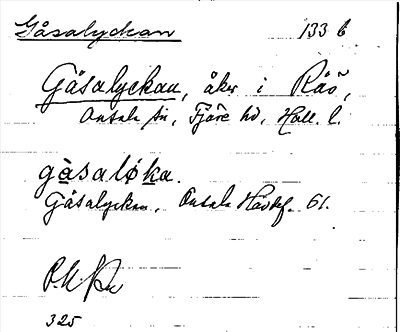 Gåsalyckan 133 b
Gåsalyckan, åker i Råö,
Onsala sn, Fjäre hd, Hall. l.
gàsaløka.
Gåsalyckan, Onsala Havdef. 61.
325